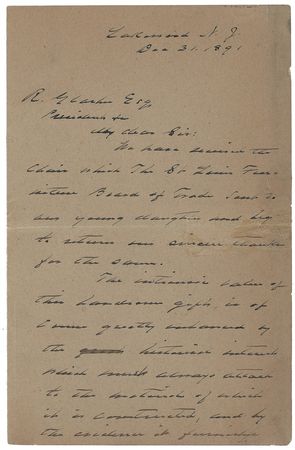 Lakewood N. J.
Dec 31. 1891
R.
President &c
My dear Sir:
We have received the
chair which The St Louis Fur-
niture Board of Trade sent to
our young daughter and beg
to return our sincere thanks
for the same.
The intrinsic value of
this handsome gift, is of
course greatly enhanced by
the historical interest
which must always attach
to the material of which
it is constructed, and by
the evidence it furnishes